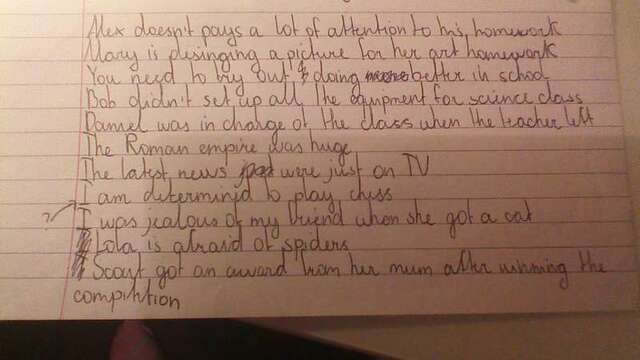 Alex doesn't pays a lot of attention to his homework
Mary is desinging a picture for her art homework
You need to try out & doing better in school
Bob didn't set up all the equipment for science class
Daniel was in charge of the class when the teacher left
The Roman empire was huge
The latest news were just on TV
I am determind to play chess
? I was jealous of my friend when she got a cat
Lola is afraid of spiders
Scout got an award from her mum after winning the